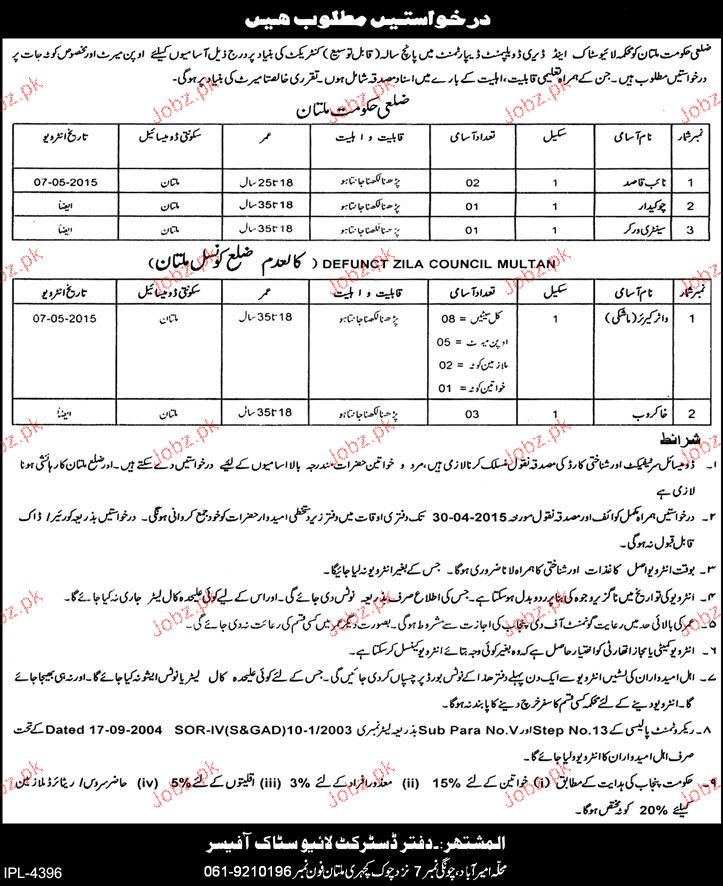 درخواستیں مطلوب ھیں
ضلعی حکومت ملتان کو محکمہ لائیو سٹاک اینڈ ڈیری ڈویلپمنٹ ڈیپارٹمنٹ میں پانچ سالہ (قابل توسیع) کنٹریکٹ کی بنیاد پر درج ذیل آسامیوں کیلئے اوپن میرٹ اور مخصوص کوٹہ جات پر
درخواستیں مطلوب ہیں۔ جن کے ہمراہ تعلیمی قابلیت، اہلیت کے بارے میں اسناد مصدقہ شامل ہوں۔ تقرری خالصتا میرٹ کی بنیاد پر ہوگی۔
ضلعی حکومت ملتان
نمبر شمار نام آسامی سکیل تعداد آسامی قابلیت و اہلیت عمر سکونتی ڈومیسائیل تاریخ انٹرویو
1 نائب قاصد 1 02 پڑھنا لکھنا جانتا ہو 18 تا 25 سال ملتان 07-05-2015
2 چوکیدار 1 01 پڑھنا لکھنا جانتا ہو 18 تا 35 سال ملتان ایضاً
3 سینٹری ورکر 1 01 پڑھنا لکھنا جانتا ہو 18 تا 35 سال ملتان ایضاً
DEFUNCT ZILA COUNCIL MULTAN (کالعدم ضلع کونسل ملتان)
نمبر شمار نام آسامی سکیل تعداد آسامی قابلیت و اہلیت عمر سکونتی ڈومیسائیل تاریخ انٹرویو
1 واٹر کیریئر (ماشکی) 1 کل سیٹیں = 08 پڑھنا لکھنا جانتا ہو 18 تا 35 سال ملتان 07-05-2015
اوپن میرٹ = 05
ملازمین کوٹہ = 02
خواتین کوٹہ = 01
2 خاکروب 1 03 پڑھنا لکھنا جانتا ہو 18 تا 35 سال ملتان ایضاً
شرائط
۱۔ ڈومیسائل سرٹیفکیٹ اور شناختی کارڈ کی مصدقہ نقول منسلک کرنا لازمی ہیں، مرد و خواتین حضرات مندرجہ بالا اسامیوں کے لیے درخواستیں دے سکتے ہیں۔ اور ضلع ملتان کا رہائشی ہونا
لازمی ہے
۲۔ درخواستیں ہمراہ مکمل کوائف اور مصدقہ نقول مورخہ 30-04-2015 تک دفتری اوقات میں دفتر زیر دستخطی امیدوار حضرات کو خود جمع کروانی ہونگی۔ درخواستیں بذریعہ کورئیر/ ڈاک
قابل قبول نہ ہوگی۔
۳۔ بوقت انٹرویو اصل کاغذات اور شناختی کا ہمراہ لانا ضروری ہوگا۔ جس کے بغیر انٹرویو نہ لیا جائیگا۔
۴۔ انٹرویو کی تواریخ میں ناگزیر وجوہ کی بنا پر ردو بدل ہو سکتا ہے۔ جس کی اطلاع صرف بذریعہ نوٹس دی جائے گی۔ اور اس کے لیے کوئی علیحدہ کال لیٹر جاری نہ کیا جائے گا۔
۵۔ عمر کی بالائی حد میں رعایت گورنمنٹ آف دی پنجاب کی اجازت سے مشروط ہوگی۔ بصورت دیگر عمر میں کسی قسم کی رعائت نہ دی جائے گی۔
۶۔ انٹرویو کمیٹی یا مجاز اتھارٹی کو اختیار حاصل ہے کہ وہ بغیر کوئی وجہ بتائے انٹرویو کینسل کر سکتا ہے۔
۷۔ اہل امیدواران کی لسٹیں انٹرویو سے ایک دن پہلے دفتر ھذا کے نوٹس بورڈ پر چسپاں کر دی جائیں گی۔ جس کے لئے کوئی علیحدہ کال لیٹر یا نوٹس ایشو نہ کیا جائے گا۔ اور نہ ہی بھیجا جائے
گا۔ انٹرویو دینے کے لئے محکمہ کسی قسم کا سفر خرچ دینے کا پابند نہ ہوگا۔
۸۔ ریکروٹمنٹ پالیسی کے Step No.13 اور Sub Para No.V بذریعہ لیٹر نمبری SOR-IV(S&GAD)10-1/2003 Dated 17-09-2004 کے تحت
صرف اہل امیدواران کا انٹرویو لیا جائے گا۔
۹۔ حکومت پنجاب کی ہدایت کے مطابق (i) خواتین کے لئے 15% (ii) معذور افراد کے لئے 3% (iii) اقلیتوں کے لئے 5% (iv) حاضر سروس/ ریٹائرڈ ملازمین
کیلئے 20% کوٹہ مختص ہوگا۔
المشتھر:۔ دفتر ڈسٹرکٹ لائیو سٹاک آفیسر
محلہ امیر آباد، چونگی نمبر 7 نزد چوک کچہری ملتان فون نمبر 061-9210196
IPL-4396
Jobz.pk